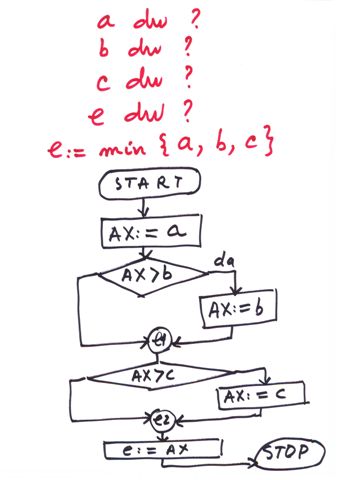 a dw ?
b dw ?
c dw ?
e dw ?
e:= min {a, b, c}
START
AX:= a
AX>b
da
AX:=b
e1
AX>c
AX:= c
e2
e:= AX
STOP